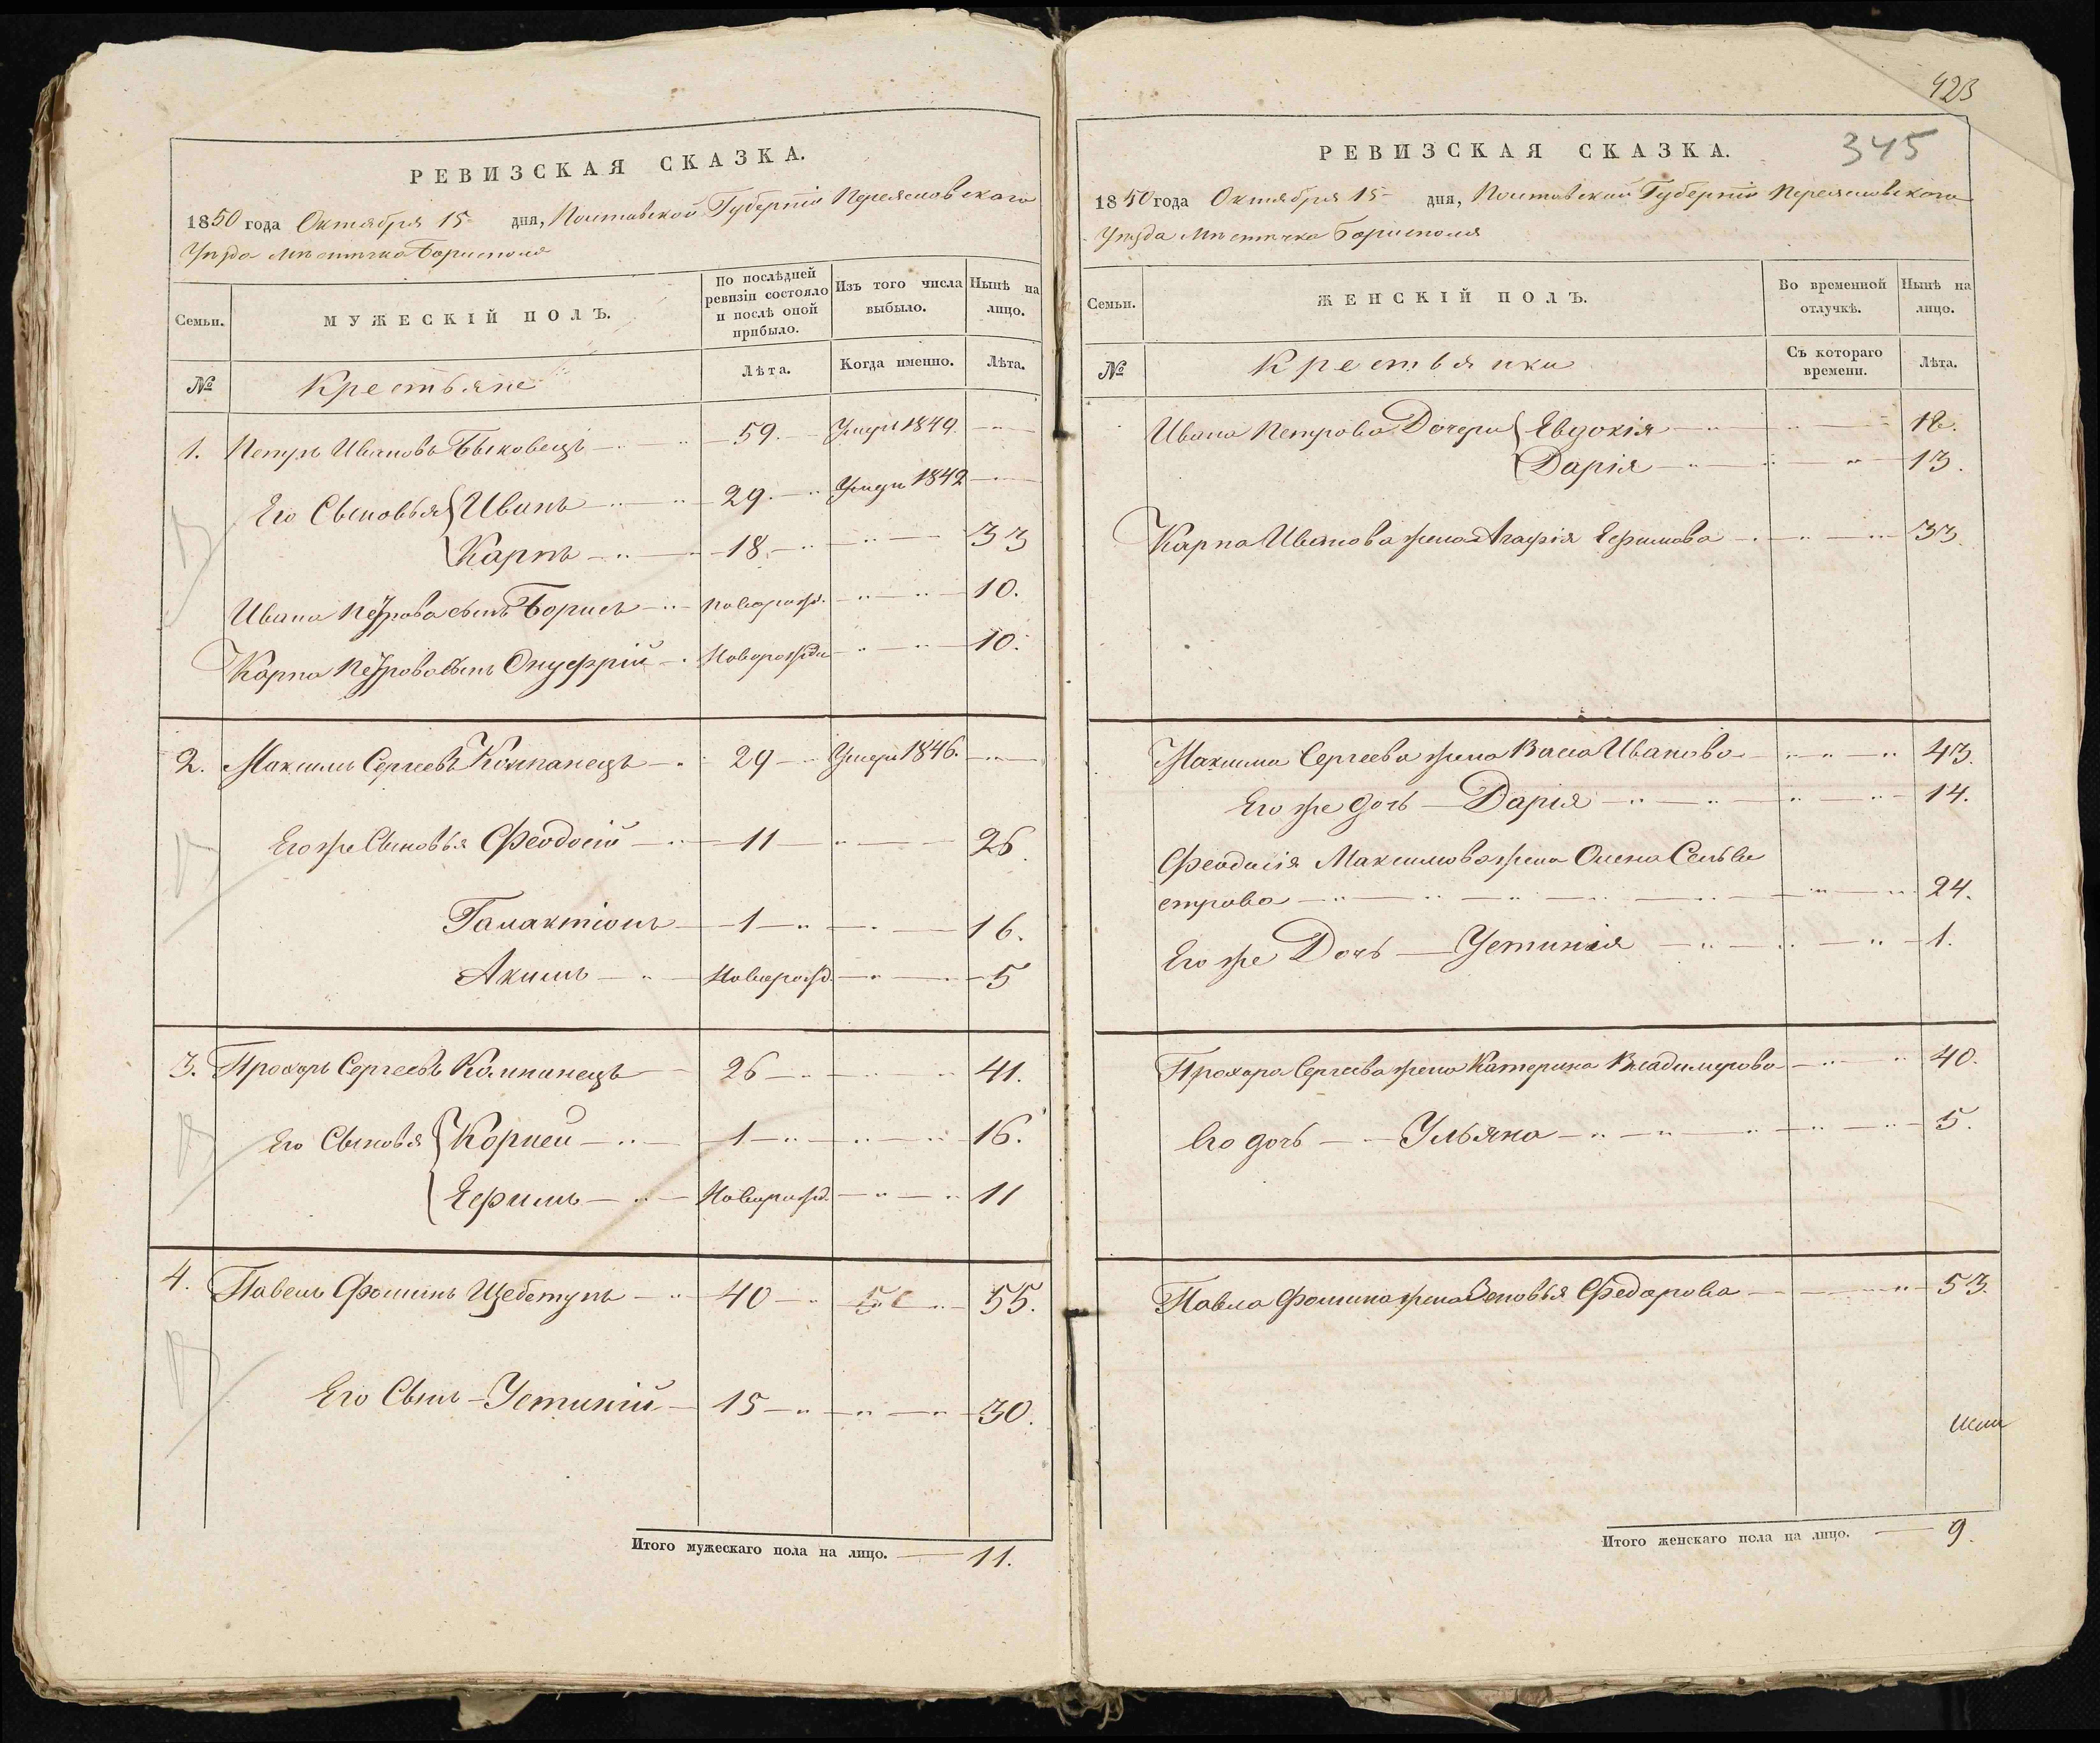 РЕВИЗСКАЯ СКАЗКА.
1850 года Октября 15 дня, Полтавской Губерніи Переяславскаго
Уѣзда Мѣстечка Борисполя
Семьи. МУЖЕСКІЙ ПОЛЪ. По послѣдней ревизіи состояло и послѣ оной прибыло. Изъ того числа выбыло. Нынѣ на лицо.
№ Крестьяне Лѣта. Когда именно. Лѣта.
1. Петръ Ивановъ Быковецъ 59. Умеръ 1849.
Его Сыновья Иванъ 29. 1842
Карпъ 18. 33
Ивана Петрова сынъ Борисъ новорожд. 10.
Карпа Петрова сынъ Онуфрій Новорожден 10.
2. Максимъ Сергеевъ Колпанецъ 29 Умеръ 1846.
Его же Сыновья Феодосій 11 26.
Галактіонъ 1 16.
Акимъ Новорожд. 5
3. Прохоръ Сергеевъ Колпанецъ 26 41.
Его Сыновья Корней 1 16.
Ефимъ Новорожд. 11
4. Павелъ Фоминъ Щебетунъ 40 55.
Его Сынъ Устиній 15 30.
Итого мужескаго пола на лицо. 11.
423
345
РЕВИЗСКАЯ СКАЗКА.
1850 года Октября 15 дня, Полтавской Губерніи Переяславскаго
Уѣзда Мѣстечка Борисполя
Семьи. ЖЕНСКІЙ ПОЛЪ. Во временной отлучкѣ. Нынѣ на лицо.
№ Крестьянки Съ котораго времени. Лѣта.
Ивана Петрова Дочери Евдокія 18.
Дарія 13.
Карпа Иванова жена Агафія Ефимова 33.
Максима Сергеева жена Васса Иванова 43.
Его же дочь Дарія 14.
Феодосія Максимова жена Олена Сельве
строва 24.
Его же Дочь Устинія 1.
Прохора Сергеева жена Катерина Владимерова 40.
Его дочь Ульяна 5.
Павла Фомина жена Зеновья Федорова 53.
Итого женскаго пола на лицо. 9.